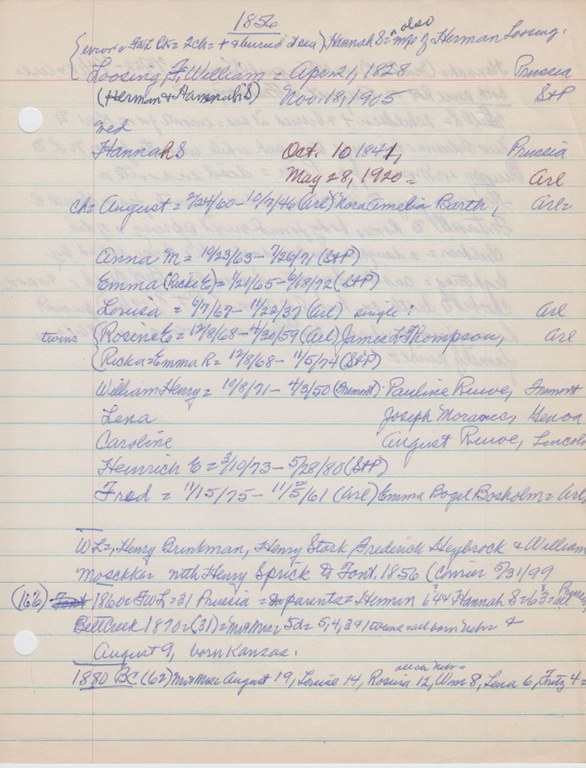 1856
also
Hannah S = mo of Herman Loosing.
Loosing, F. William = Apr. 21, 1828 Prussia
(Herman & Hannah S) Nov. 18, 1905 S+P
wed
Hannah S Oct. 10, 1841, Prussia
May 28, 1920 = Arl
ch = August = 2/24/60 - 10/2/46 (Arl) Nora Amelia Barth, Arl =
Anna M = 10/23/63 - 7/26/71 (S+P)
Emma (Ricke E) = 1/21/65 - 9/18/72 (S+P)
Louisa = 6/7/67 - 11/22/37 (Arl) single; Arl
twins Rosine E = 12/8/68 - 4/30/59 (Arl) James L Thompson, Arl
Ricka = Emma R = 12/8/68 - 11/5/74 (S+P)
William Henry = 10/8/71 - 4/3/50 (Fremont) Pauline Ruwe, Fremont
Lena Joseph Moramec, Genoa
Caroline August Ruwe, Lincoln
Heinrich E = 3/10/73 - 5/28/80 (S+P)
Fred = 11/15/75 - 11/5/61 (Arl) Emma Bogel Bosholm = Arl
WL =, Henry Brinkman, Henry Stork, Frederick Heybrock & William
Moschker with Henry Sprick to Font. 1856 (Courier 5/31/99
(166) 1860 = FWL = 31 Prussia = parents = Herman 64 & Hannah S = 63 = all Prussia,
Bell Creek 1870 = (31) = Mr + Mrs 5d = 5, 4, 3 + 1 twins = all born Nebr &
August 9, born Kansas.
all on Nebr =
1880 BC (62) Mr + Mrs August 19, Louise 14, Rosina 12, Wm 8, Lena 6, Fritz 4 =